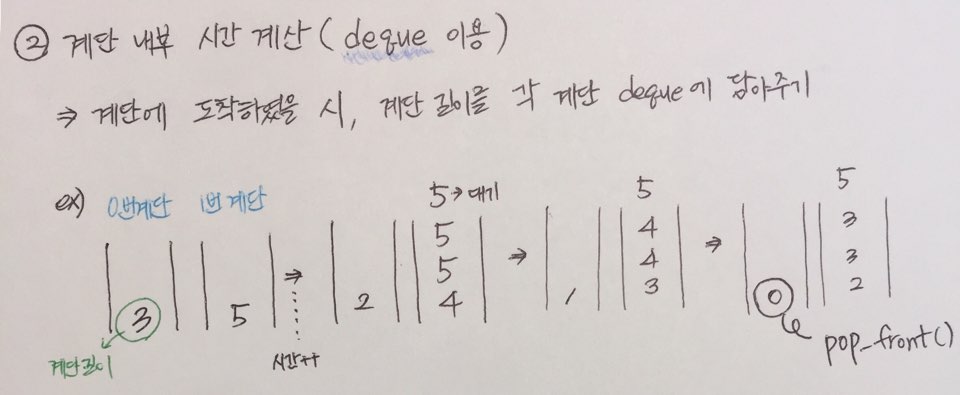 ② 계단 내부 시간 계산 ( deque 이용 )
⇒ 계단에 도착하였을 시, 계단 길이를 각 계단 deque에 담아주기
ex) 0번계단 1번 계단
5→대기 5 5
5 4 3
5 4 3
3 5 ⇒ 2 4 ⇒ 1 3 ⇒ 0 2
계단길이 시간++ pop_front()